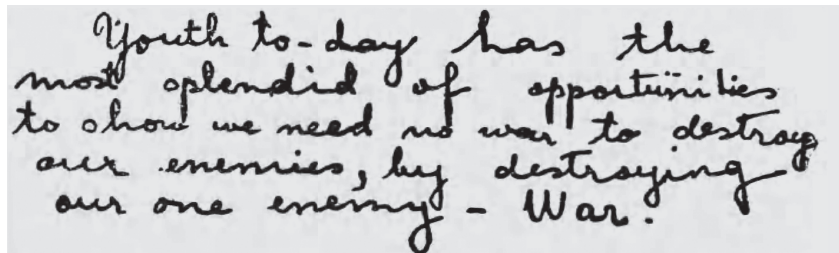 Youth to-day has the
most splendid of opportunities
to show we need no war to destroy
our enemies, by destroying
our one enemy - War.